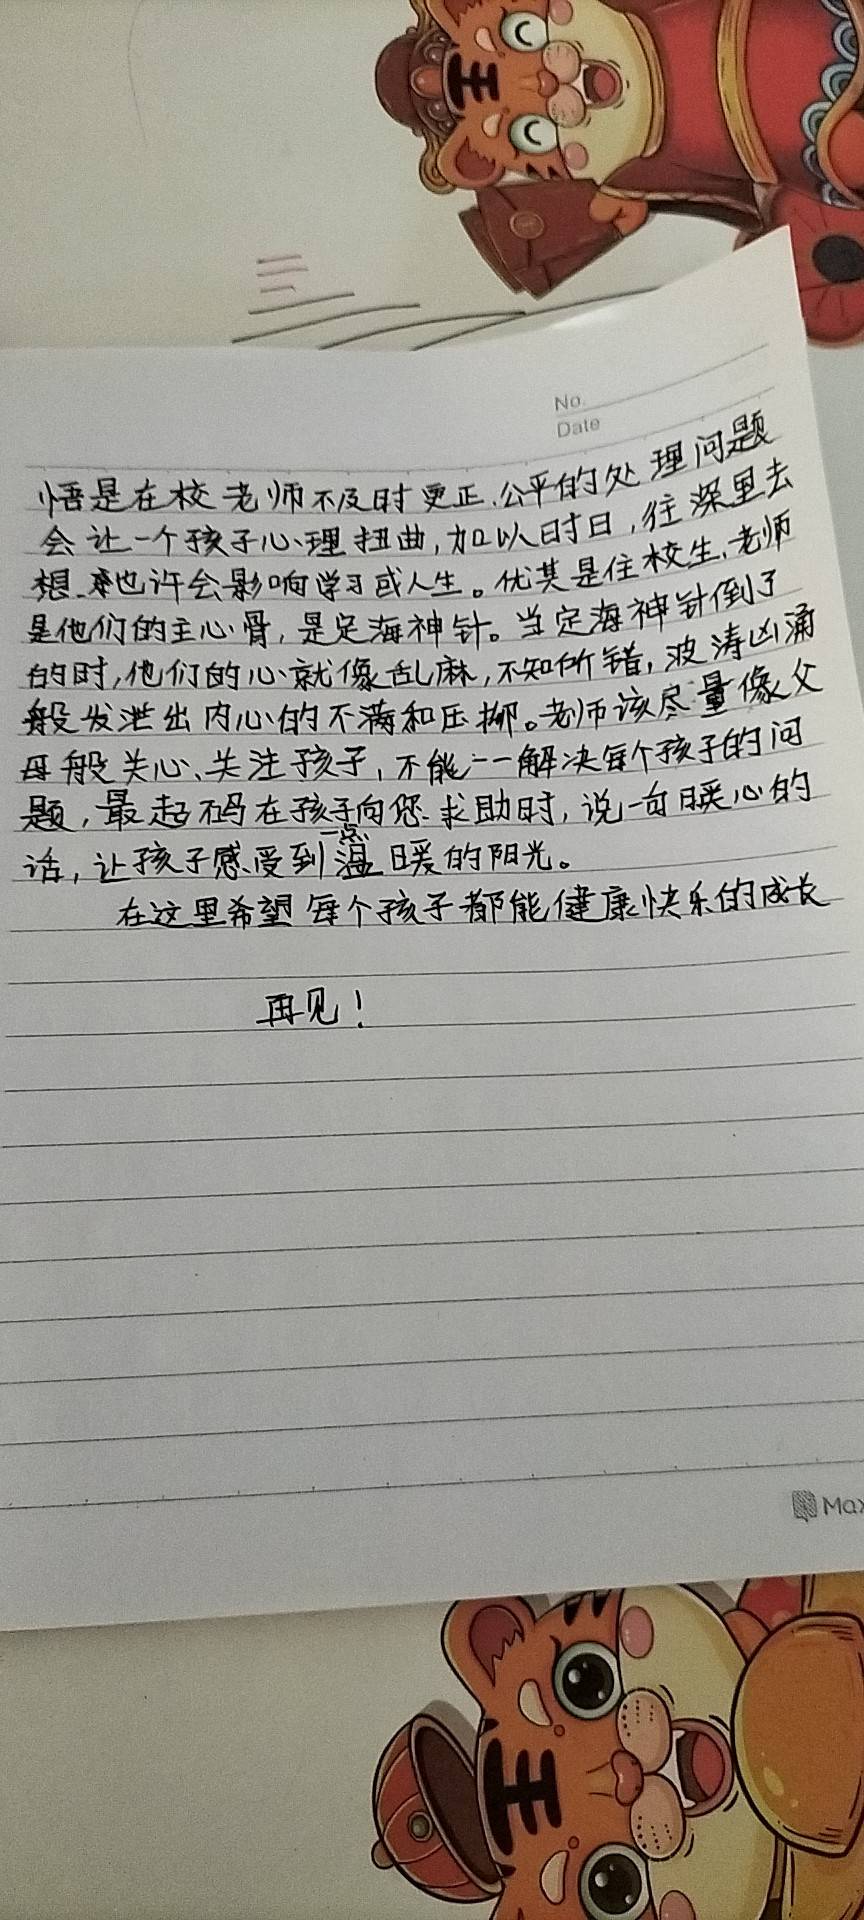 王
No.
Date
悟是在校老师不及时更正、公平的处理问题
会让一个孩子心理扭曲,加以时日,往深里去
想、也许会影响学习或人生。优其是住校生、老师
是他们的主心骨,是定海神针。当定海神针倒了
的时,他们的心就像乱麻,不知所错,波涛凶涌
般发泄出内心的不满和压抑。老师该尽量像父
母般关心、关注孩子,不能一一解决每个孩子的问
题,最起码在孩子向您求助时,说一句暖心的
话,让孩子感受到一点温暖的阳光。
在这里希望每个孩子都能健康快乐的成长
再见!
Max
王